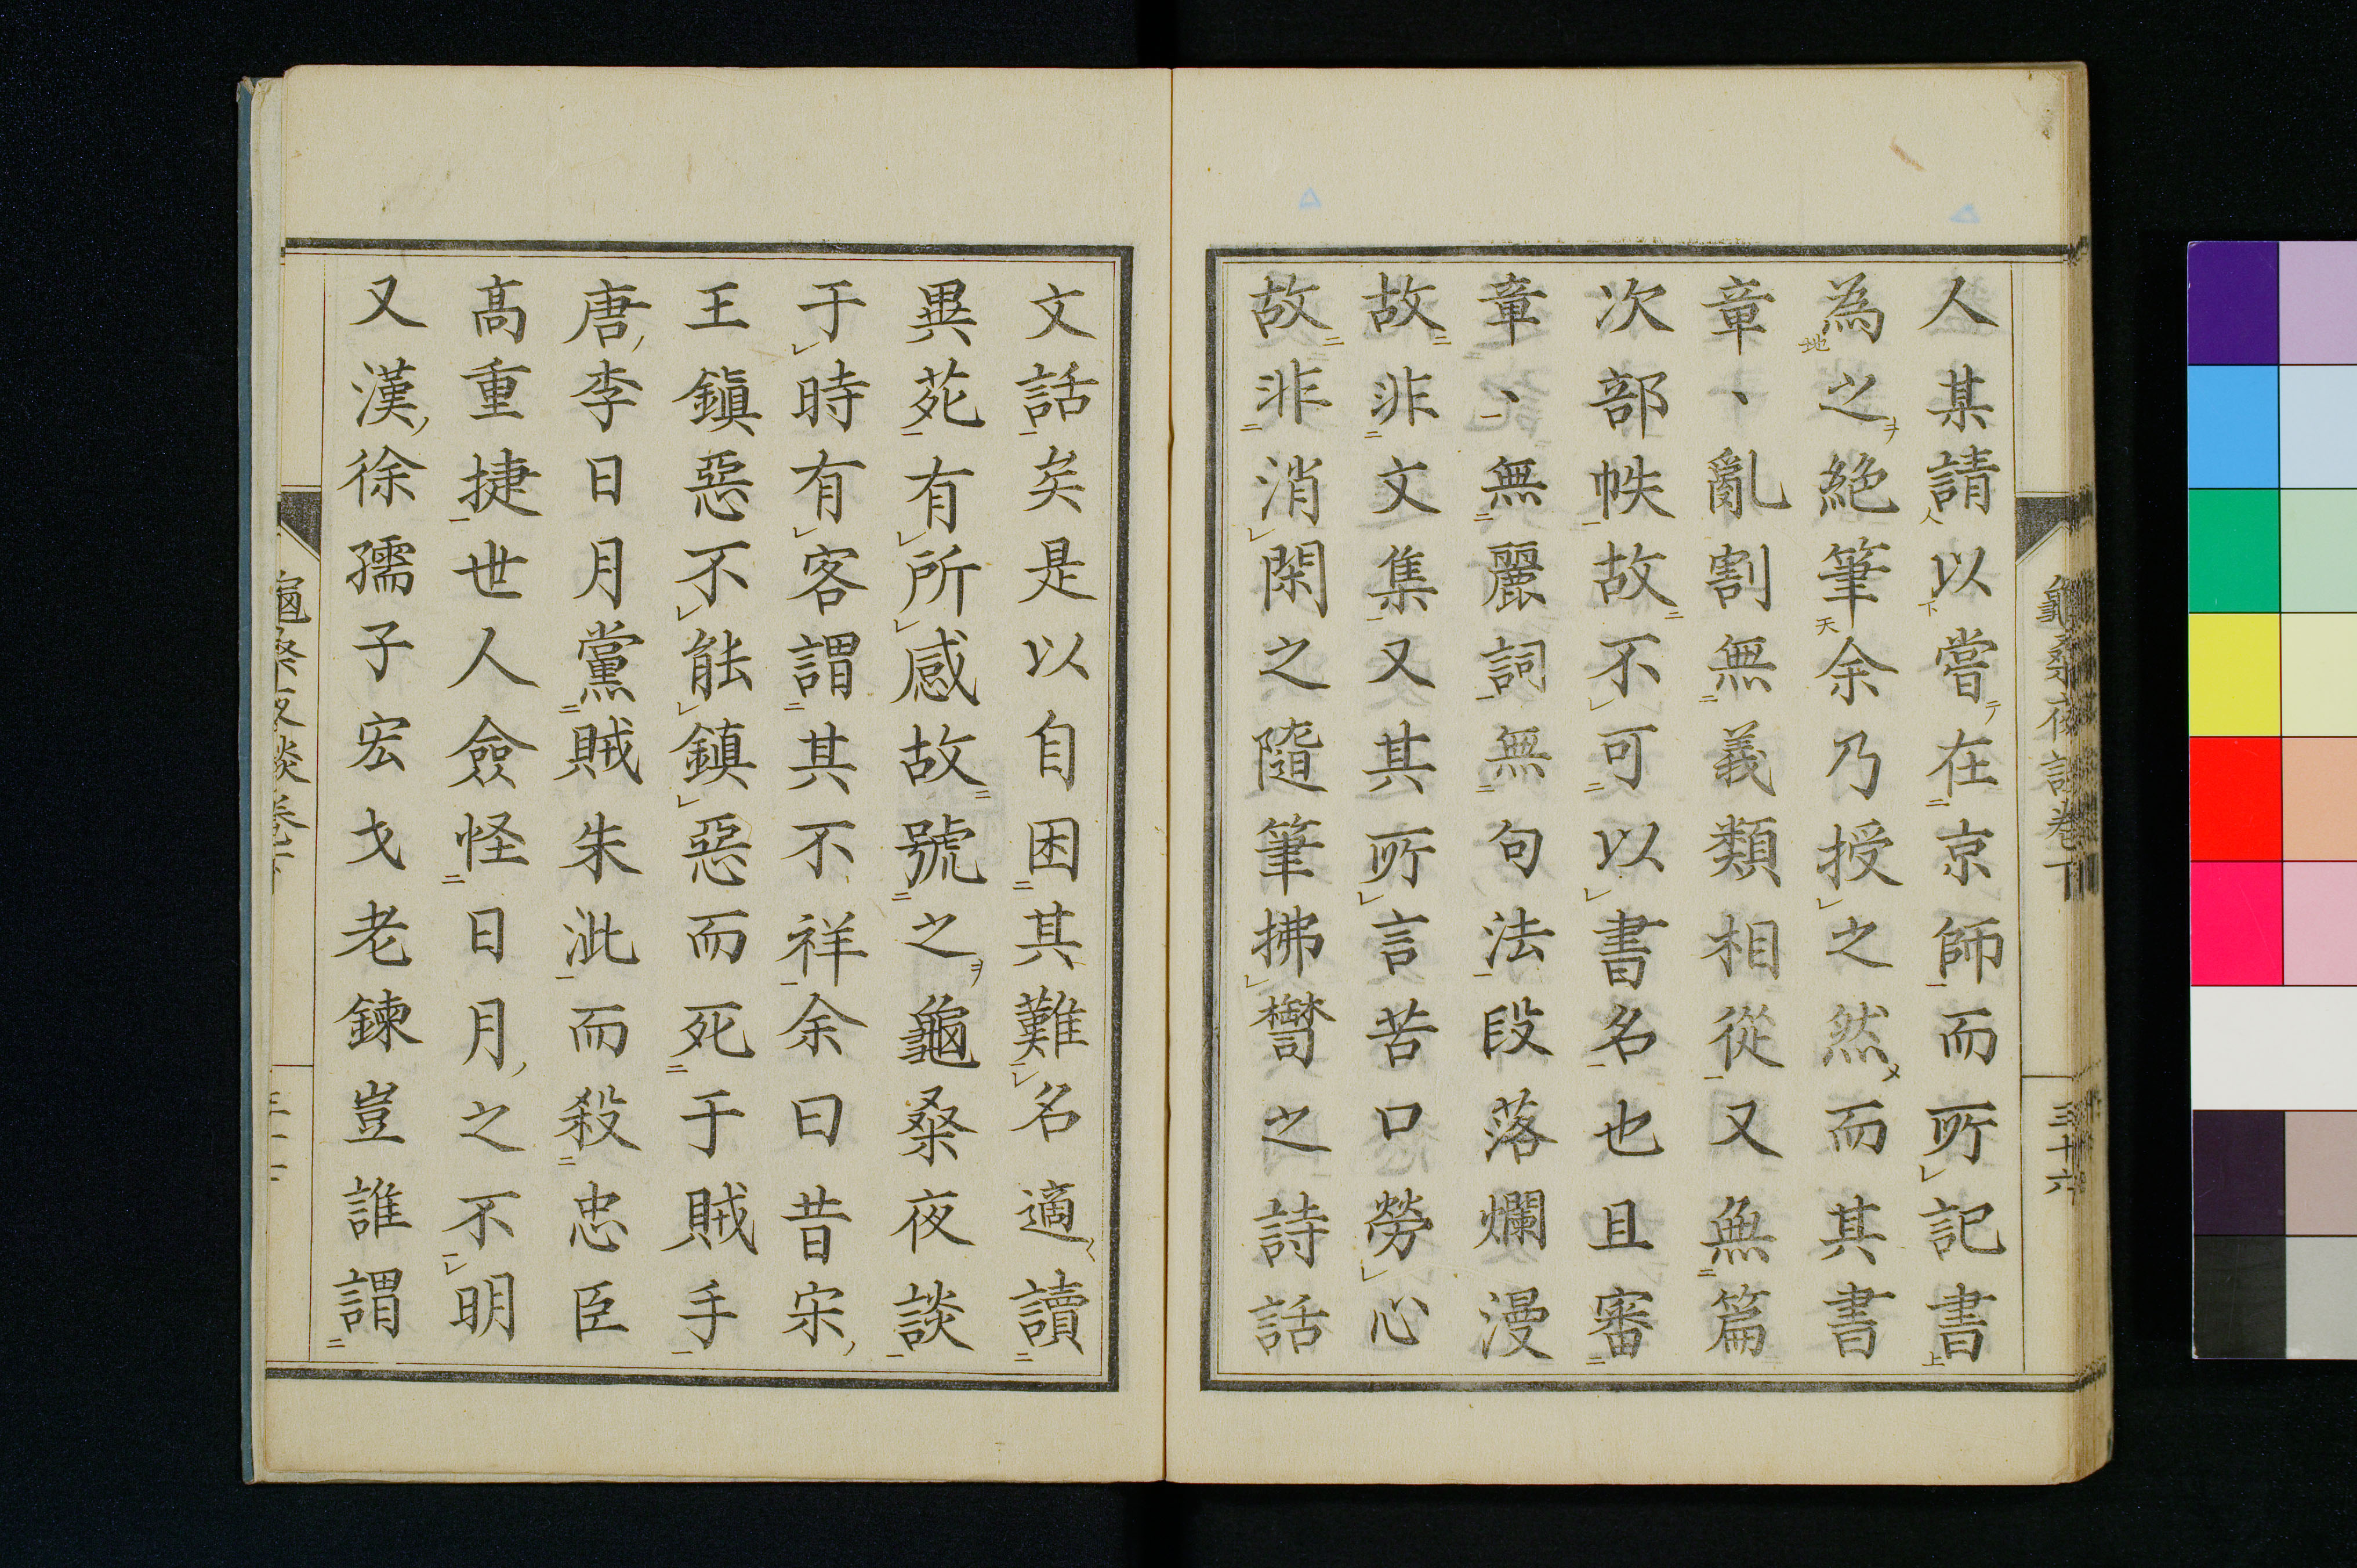 龜桑夜談卷下 三十六
人某請以嘗在京師而所記書
為之絶筆余乃授之然而其書
章、亂割無義類相從又無篇
次部帙故不可以書名也且審
章、無麗詞無句法段落爛漫
故非文集又其所言苦口勞心
故非消閑之隨筆拂欝之詩話
文話矣是以自困其難名適讀
異苑有所感故號之龜桑夜談
于時有客謂其不祥余曰昔宋
王鎭惡不能鎭惡而死于賊手
唐李日月黨賊朱泚而殺忠臣
高重捷世人僉怪日月之不明
又漢徐孺子宏戈老鍊豈誰謂
龜桑夜談卷下